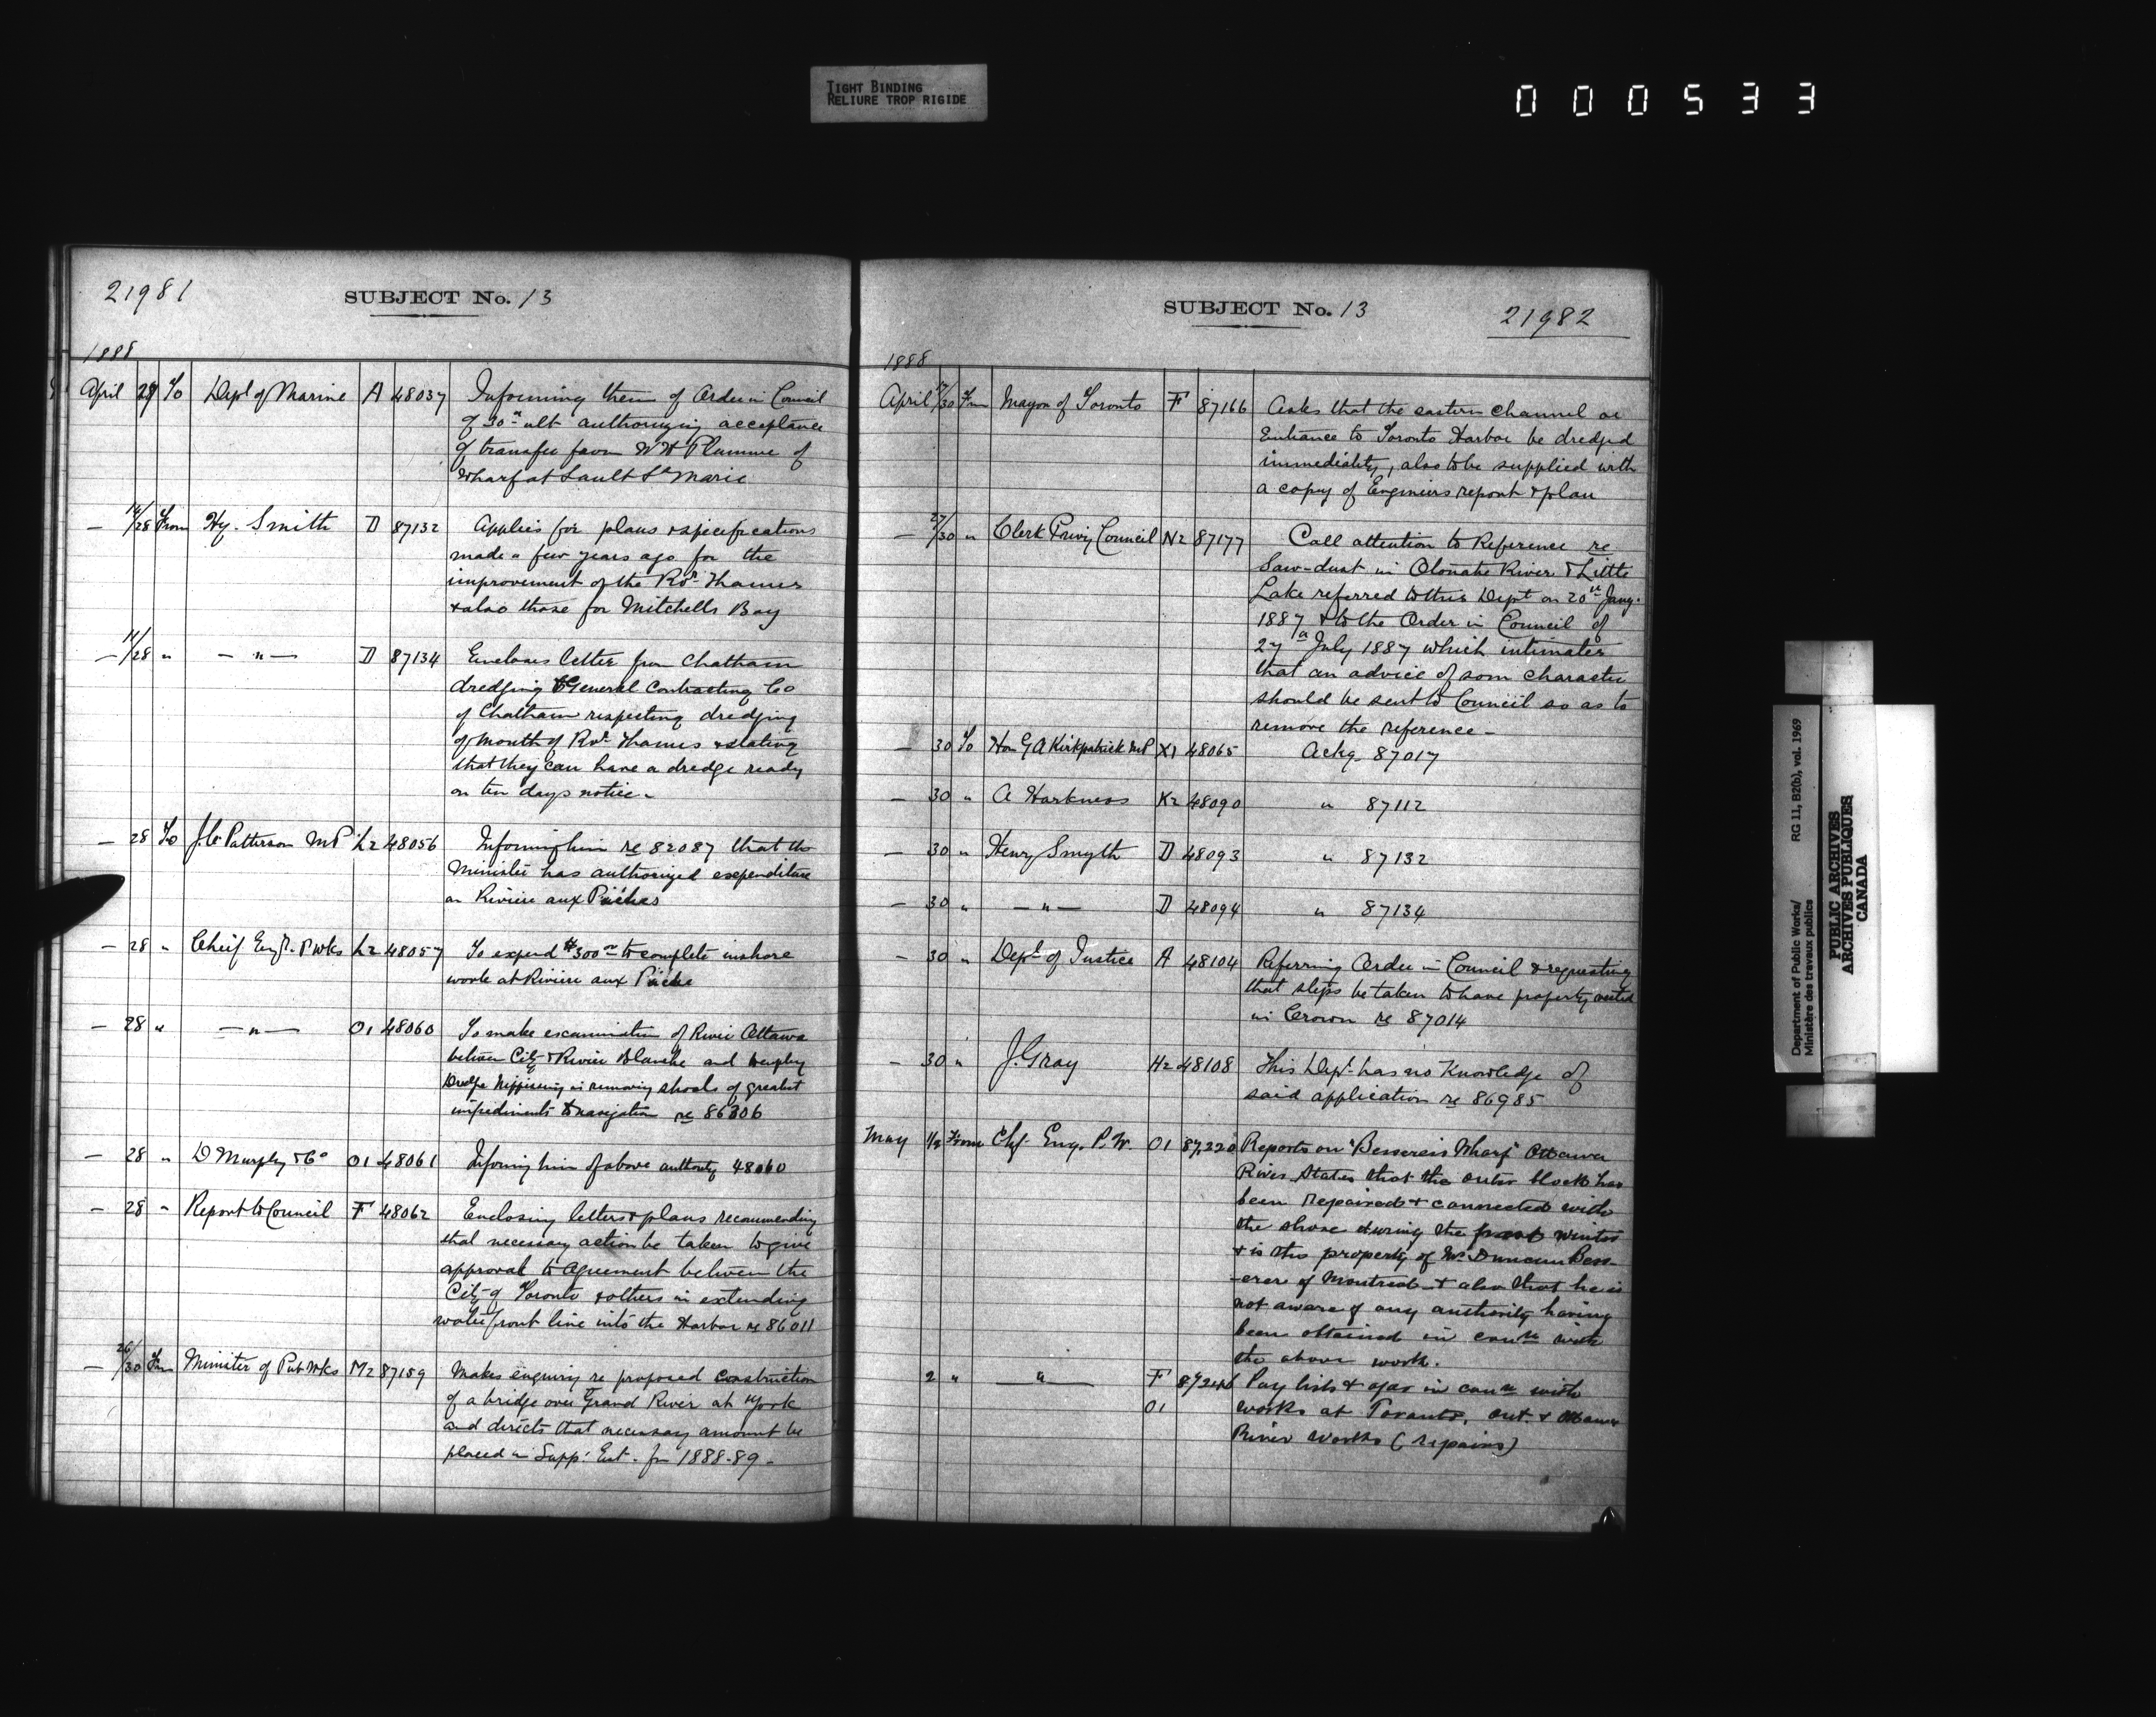 TIGHT BINDING
RELIURE TROP RIGIDE
000533
21981
SUBJECT No. 13
1888
April 28 To Dept of Marine A 48037 Informing them of Order in Council
of 30th ult authorizing acceptance
of transfer from W H Plummer of
Wharf at Sault Ste Marie
— 14/28 From Hy. Smith D 87132 Applies for plans & specifications
made a few years ago for the
improvement of the Rvr Thames
& also those for Mitchells Bay
— 11/28 " — " — D 87134 Encloses letter from Chatham
dredging & General Contracting Co
of Chatham respecting dredging
of mouth of Rvr Thames & stating
that they can have a dredge ready
on ten days notice.
— 28 To J.C. Patterson MP L2 48056 Informing him re 82087 that the
Minister has authorized expenditure
on Rivière aux Pûches
— 28 " Cheif Engr. P Wks L2 48057 To expend $300 00 to complete inshore
work at Rivière aux Pûche
— 28 " — " — O1 48060 To make examination of River Ottawa
between City & Rivière Blanche and employ
Dredge Nippissing in removing shoals of greatest
impediments to navigation re 86306
— 28 " D Murphy & Co O1 48061 Informing him of above authority 48060
— 28 " Report to Council F 48062 Enclosing letters & plans recommending
that necessary action be taken to give
approval to Agreement between the
City of Toronto & others in extending
water front line into the Harbor re 86011
— 26/30 Frm Minister of Pub Wks M2 87159 Makes enquiry re proposed construction
of a bridge over Grand River at York
and directs that necessary amount be
placed in Supp. Est. for 1888-89.
SUBJECT No. 13
21982
1888
April /30 Frm Mayor of Toronto F 87166 Asks that the eastern channel or
Entrance to Toronto Harbor be dredged
immediately, also to be supplied with
a copy of Engineers report & plan
— 27/30 " Clerk Privy Council N2 87177 Call attention to Reference re
Saw-dust in Otonabe River & Little
Lake referred to this Dept on 20th Jany.
1887 & to the Order in Council of
27th July 1887 which intimates
that an advice of som character
should be sent to Council so as to
remove the reference —
— 30 To Hon G A Kirkpatrick MP X1 48065 Ackg. 87017
— 30 " A Harkness K2 48090 " 87112
— 30 " Henry Smyth D 48093 " 87132
— 30 " — " — D 48094 " 87134
— 30 " Dept of Justice A 48104 Referring Order in Council & requesting
that steps be taken to have property vested
in Crown re 87014
— 30 " J. Gray H2 48108 This Dept. has no Knowledge of
said application re 86985
May 1/2 From Chf. Eng. P.W. O1 87,220 Reports on "Besserers Wharf" Ottawa
River States that the outer block has
been repaired & connected with
the shore during the past winter
& is the property of Mr. Duncan Bess-
-erer of Montreal & also that he is
not aware of any authority having
been obtained in conn with
the above work.
2 " — " — F 87246 Pay lists & a/cs in conn with
O1 works at Toronto, Ont. & Ottawa
River Works (repairs)
Department of Public Works/ RG 11, B2(b), vol. 1969
Ministère des travaux publics
PUBLIC ARCHIVES
ARCHIVES PUBLIQUES
CANADA